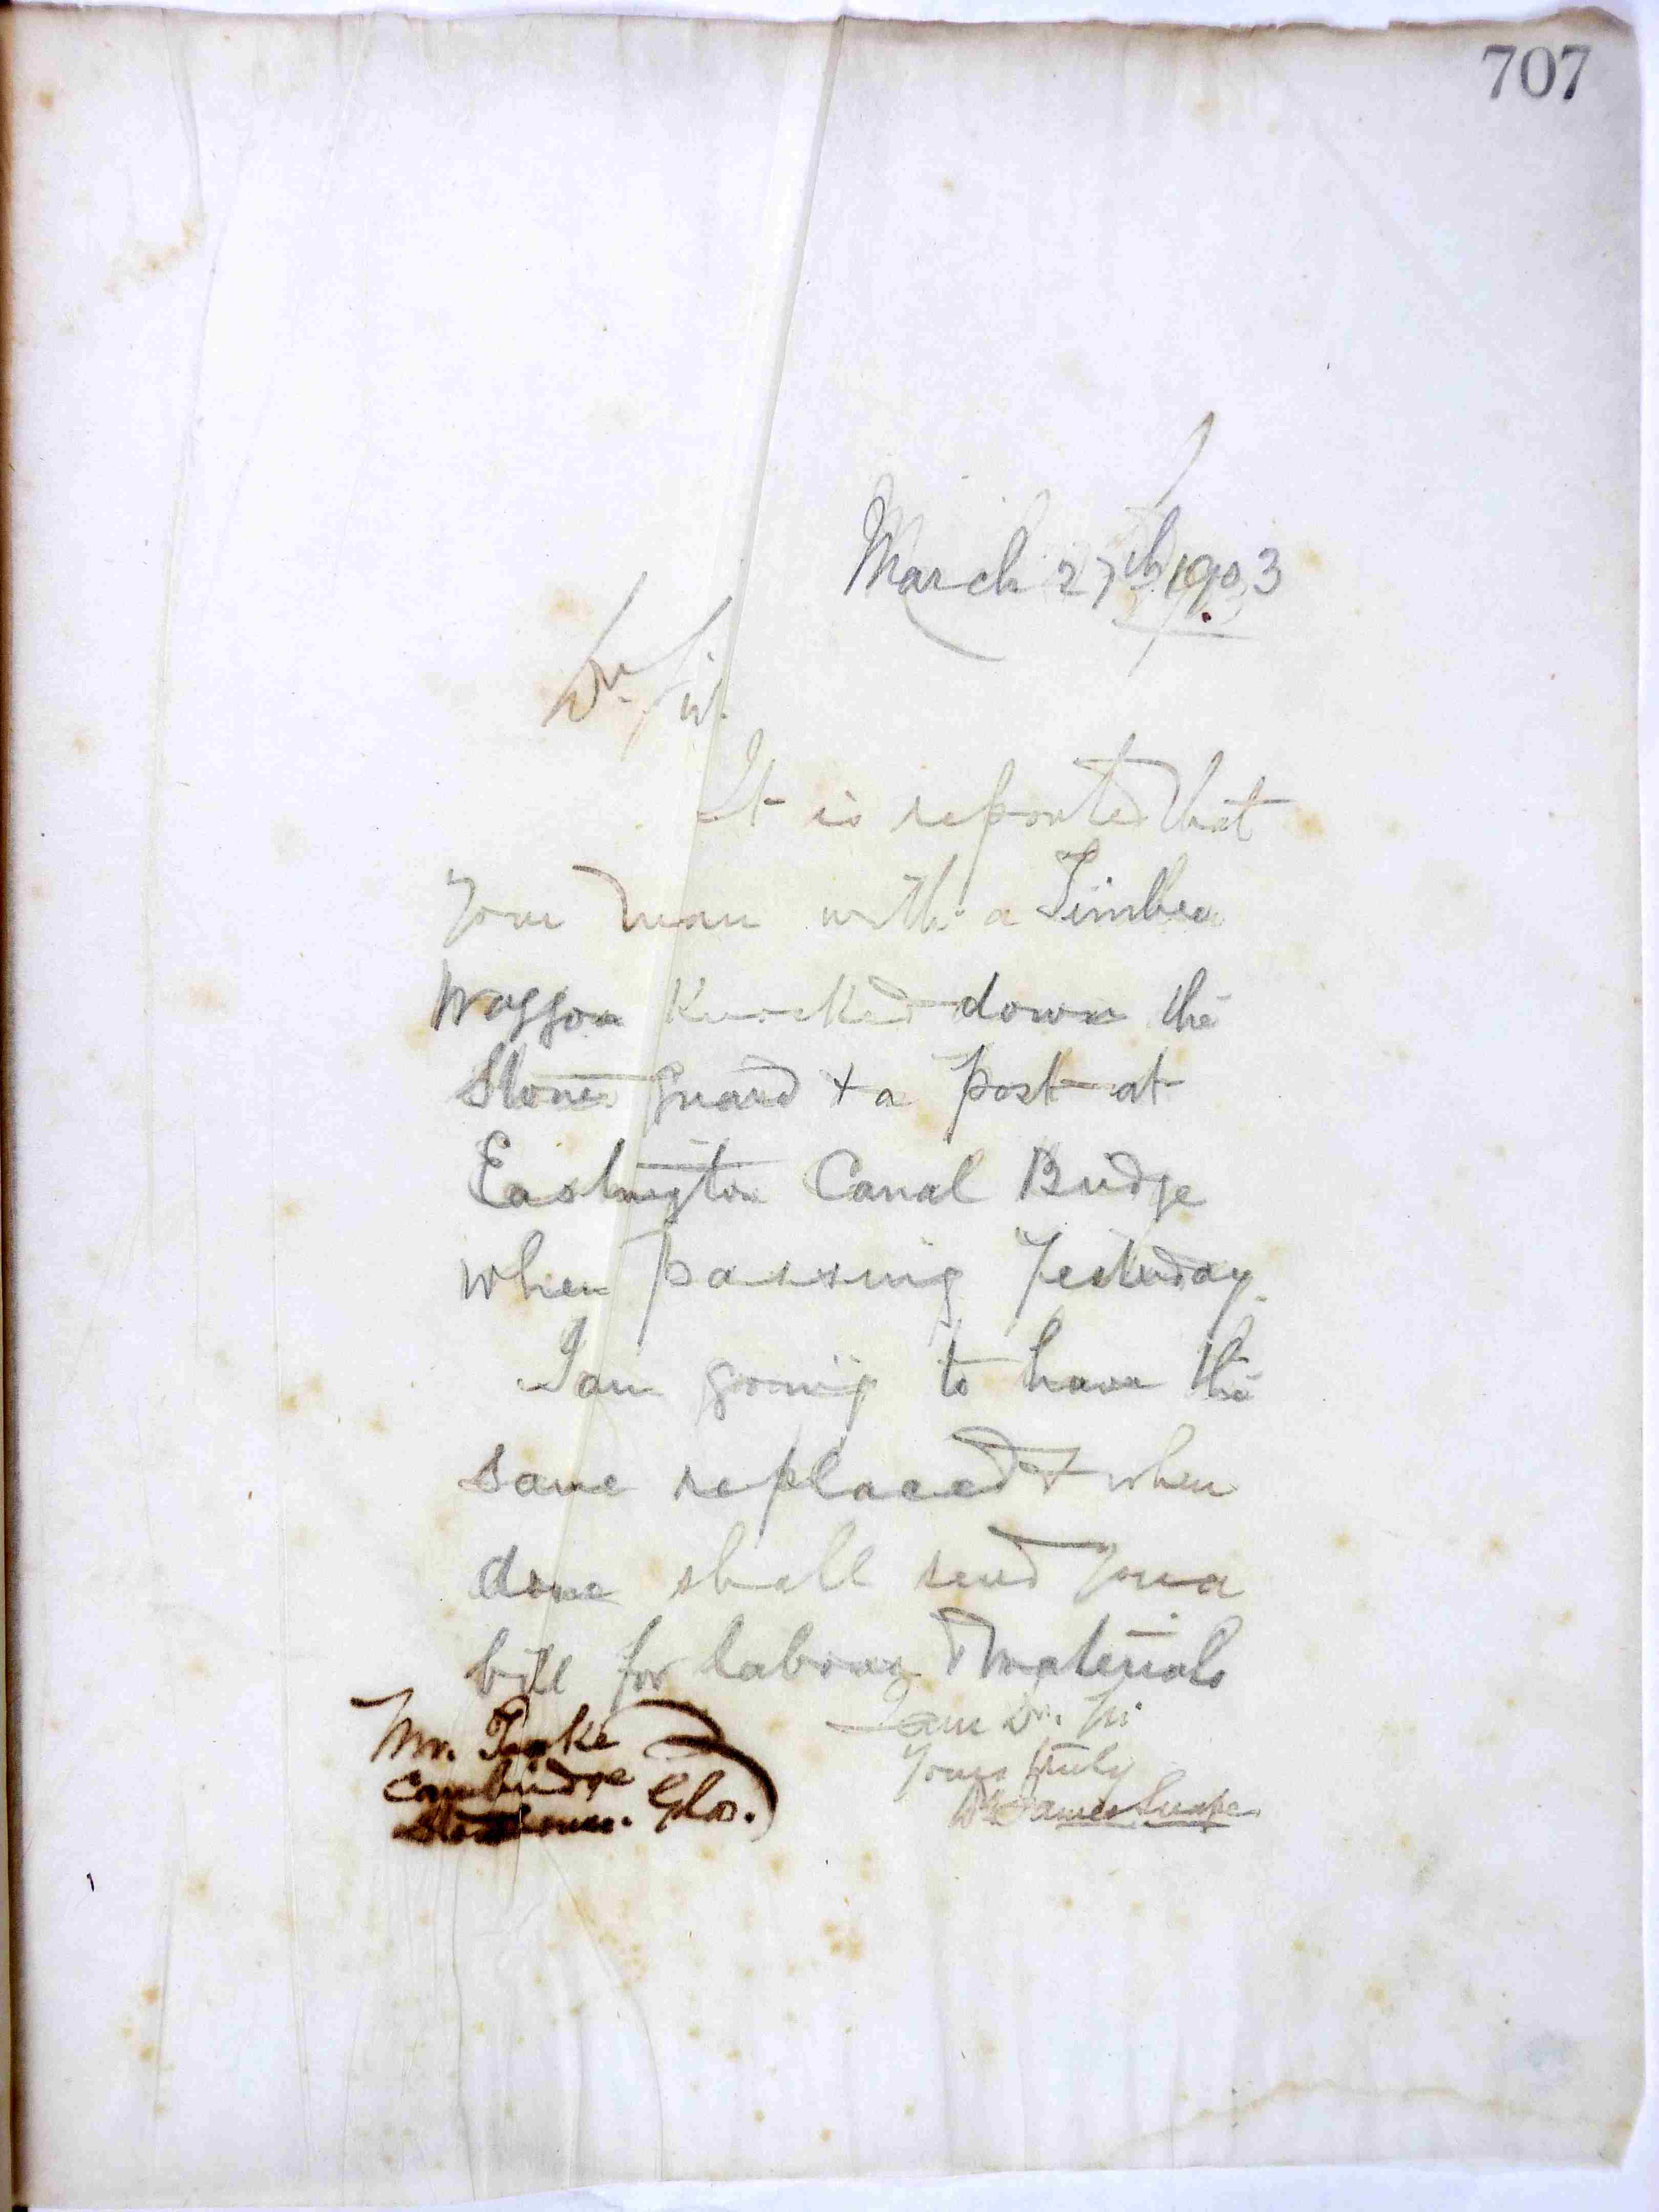 707
March 27th 1903
Dr. Sir.
It is reported that
your man with a Timber
Waggon Knocked down the
Stone guard & a post at
Eastington Canal Bridge
when passing Yesterday.
I am going to have the
same replaced & when
done shall send you a
bill for labour & materials
I am Dr. Sir
Yours truly
James Snape
Mr.
Cambridge
Stonehouse. Glos.